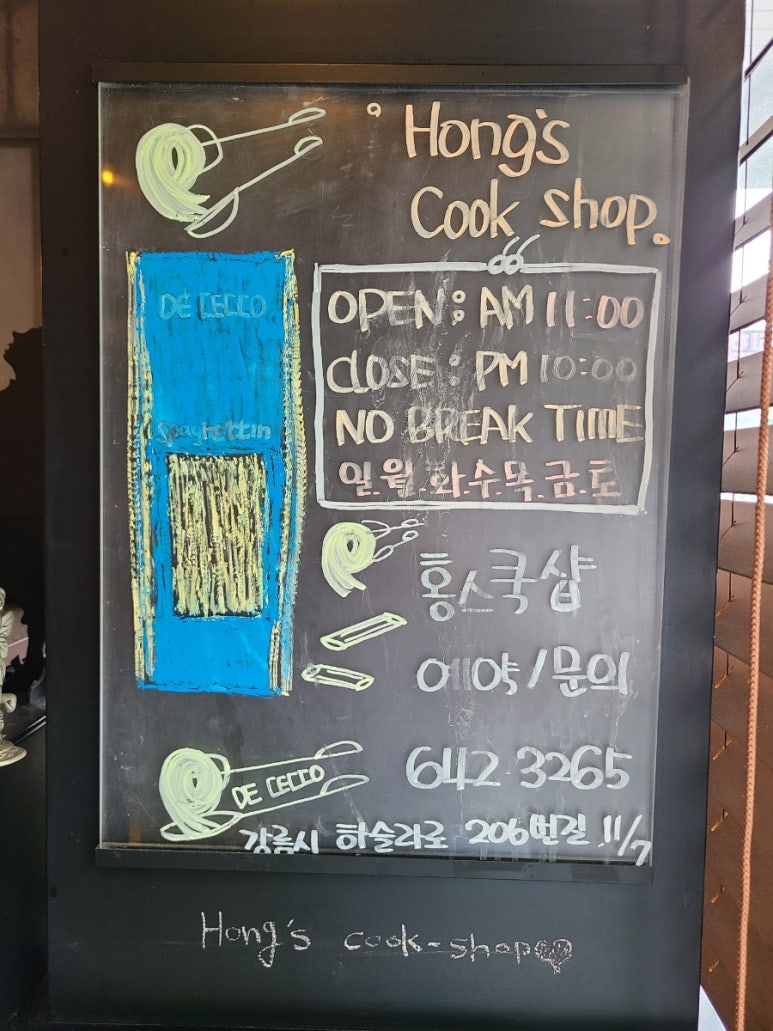 Hong's
Cook shop.
DE CECCO
Spaghettin
OPEN : AM 11:00
CLOSE : PM 10:00
NO BREAK TIME
일.월.화.수.목.금.토
홍스쿡샵
예약/문의
642 3265
DE CECCO
강릉시 하슬라로 206번길 11/7
Hong's cook-shop